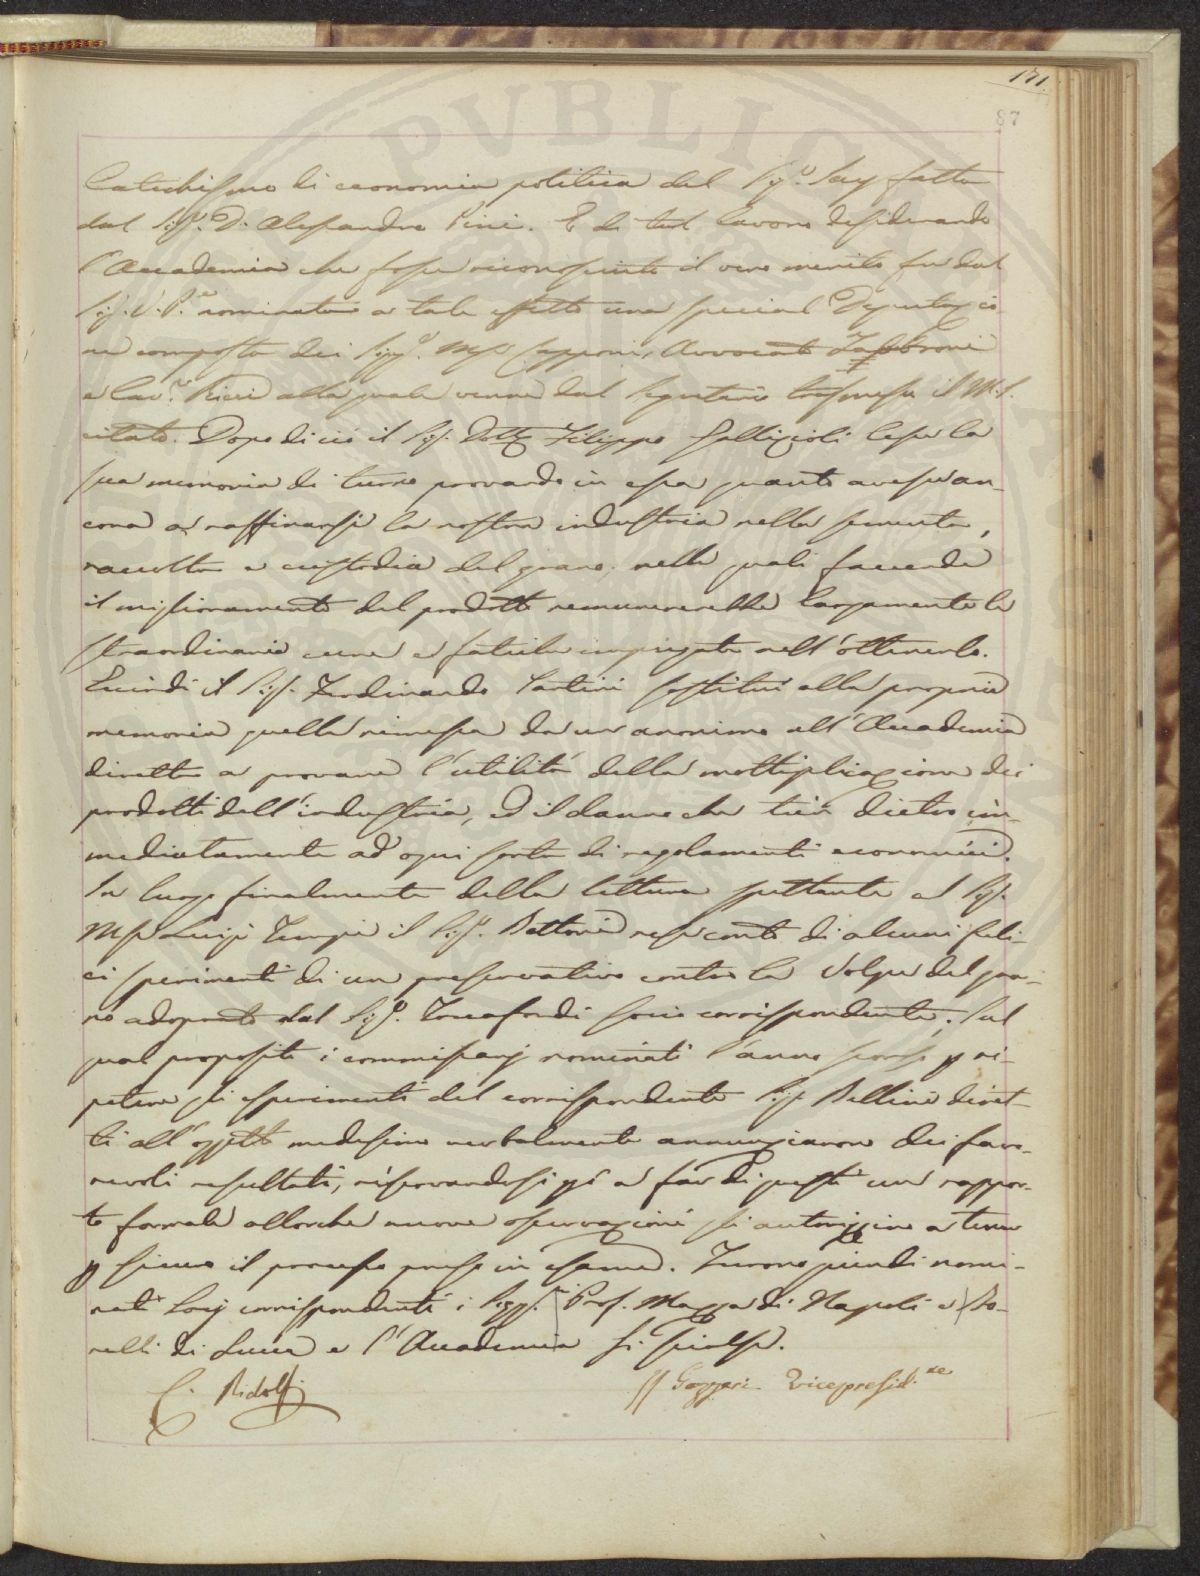 171.
87
Catechismo di economia politica del Sig.r Say fatta
dal Sig.r D. Alessandro Pini. E di tal lavoro desiderando
l'Accademia che fosse riconosciuto il vero merito fu dal
Sig. V. P.e nominata a tale effetto una special Deputazio
ne composta dei Sigg.i Mse Capponi, Avvocato Fabbroni
e Cav.e Ricci alla quale venne dal Segretario trasmesso il M.S.
citato. Dopo di ciò il Sig. Dotte Filippo Gallizioli lesse la
sua memoria di turno provando in essa quanto avesse an-
cora a raffinarsi la nostra industria nella sementa,
raccolta e custodia del grano; nelle quali faccende
il miglioramento del prodotto remunererebbe largamente le
straordinarie cure e fatiche impiegate nell'ottenerlo.
Quindi il Sig. Ferdinando Tartini sostituì alla propria
memoria quella rimessa da un anonimo all'Accademia
diretta a provare l'utilità della moltiplicazione dei
prodotti dell'industria, ed il danno che tien dietro im-
mediatamente ad ogni sorta di regolamenti economici.
In luogo finalmente della lettura spettante al Sig.
Mse Luigi Tempi il Sig.r Bettoni rese conto di alcuni feli-
ci sperimenti di un preservativo contro la Volpe del gra-
no adoprato dal Sig.r Toccafondi socio corrispondente. Sul
qual proposito i commissarj nominati l'anno scorso p ri-
petere gli esperimenti del corrispondente Sig. Bellini diret-
ti all'oggetto medesimo verbalmente annunziarono dei favo-
revoli resultati, riservandosi pò a far di questi un rappor-
to formale allorchè nuove osservazioni gli autorizzino a tener
p sicuro il processo preso in esame. Furono quindi nomi-
nati Socj corrispondenti i Sigg.ri Prof. Mazza di Napoli e Bo-
nelli di Lucca e l'Accademia si sciolse.
C. Ridolfi
G Gazzeri Vicepresid.te
PVBLICA